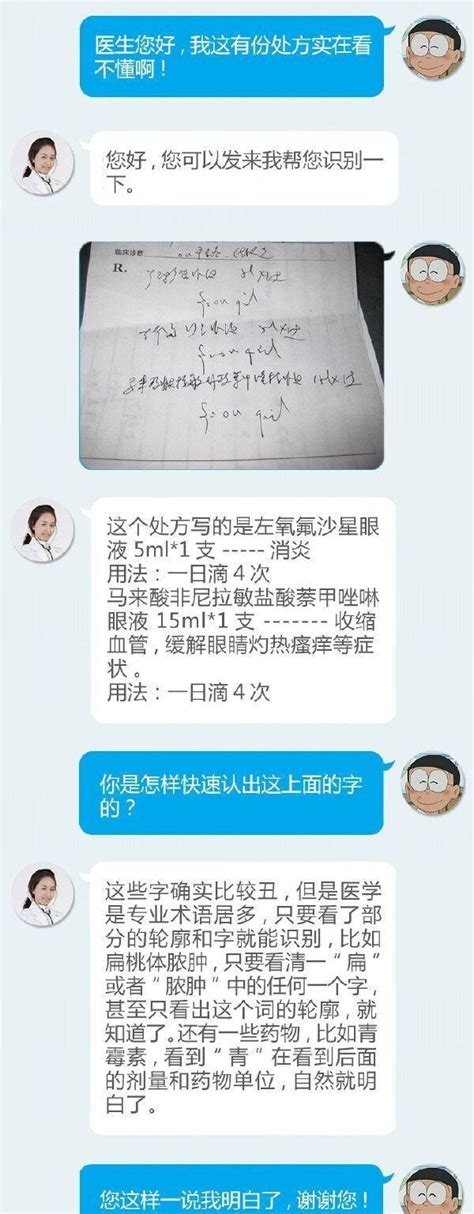 医生您好，我这有份处方实在看
不懂啊！
您好，您可以发来我帮您识别一
下。
临床诊断
R.
这个处方写的是左氧氟沙星眼
液 5ml*1 支 ----- 消炎
用法：一日滴 4 次
马来酸非尼拉敏盐酸萘甲唑啉
眼液 15ml*1 支 ------- 收缩
血管，缓解眼睛灼热瘙痒等症
状 。
用法：一日滴 4 次
你是怎样快速认出这上面的字
的？
这些字确实比较丑，但是医学
是专业术语居多，只要看了部
分的轮廓和字就能识别，比如
扁桃体脓肿，只要看清一“ 扁 ”
或者“ 脓肿 ”中的任何一个字，
甚至只看出这个词的轮廓，就
知道了。还有一些药物，比如青
霉素，看到“ 青 ”在看到后面
的剂量和药物单位，自然就明
白了。
您这样一说我明白了，谢谢您！